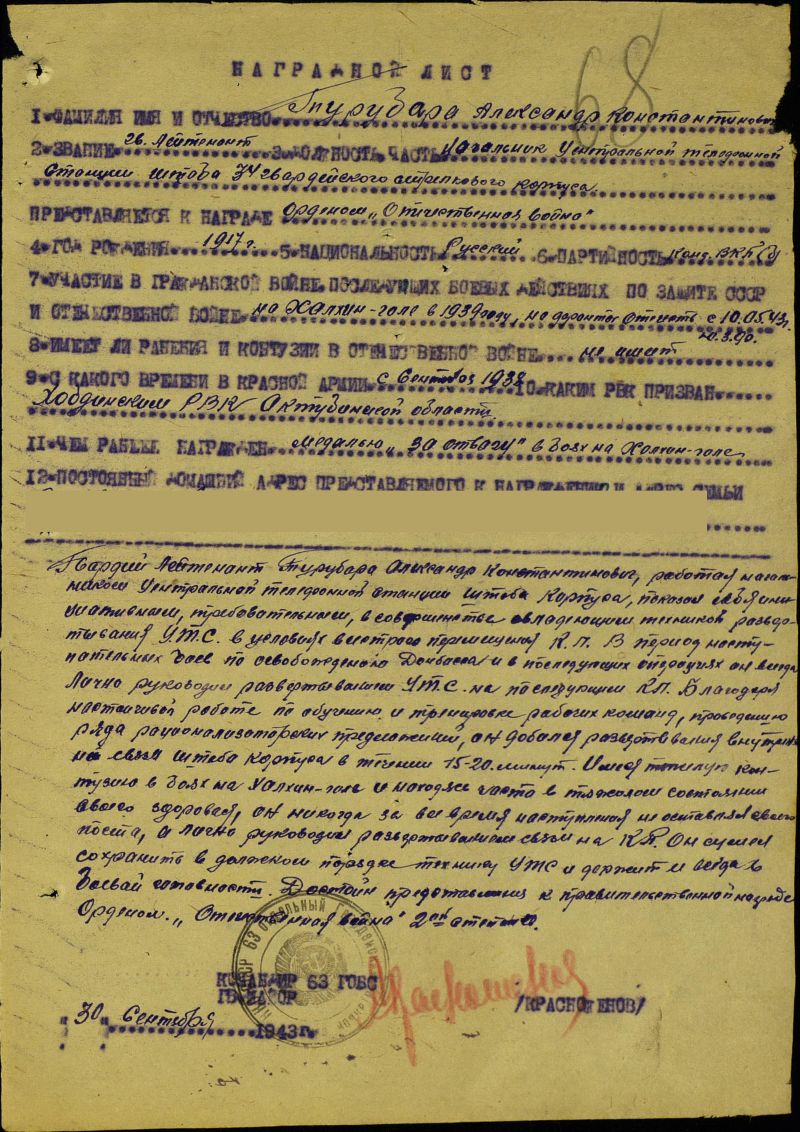 68
НАГРАДНОЙ ЛИСТ
1. ФАМИЛИЯ ИМЯ И ОТЧЕСТВО Турубара Александр Константинович
2. ЗВАНИЕ гв. Лейтенант 3. ДОЛЖНОСТЬ, ЧАСТЬ Начальник Центральной телефонной
станции штаба 34 гвардейского стрелкового корпуса
ПРЕДСТАВЛЯЕТСЯ К НАГРАДЕ Орденом „Отечественная война"
4. ГОД РОЖДЕНИЯ 1917 г. 5. НАЦИОНАЛЬНОСТЬ Русский 6. ПАРТИЙНОСТЬ Канд. ВКП(б)
7. УЧАСТИЕ В ГРАЖДАНСКОЙ ВОЙНЕ, ПОСЛЕДУЮЩИХ БОЕВЫХ ДЕЙСТВИЯХ ПО ЗАЩИТЕ СССР
И ОТЕЧЕСТВЕННОЙ ВОЙНЕ на Халхин-голе в 1939 году, на фронте Отечеств с 10.05.43г.
8. ИМЕЕТ ЛИ РАНЕНИЯ И КОНТУЗИИ В ОТЕЧЕСТВЕННОЙ ВОЙНЕ не имеет
9. С КАКОГО ВРЕМЕНИ В КРАСНОЙ АРМИИ с Сентября 1938 10. КАКИМ РВК ПРИЗВАН
Хобдинским РВК Актюбинской области
11. ЧЕМ РАНЬШЕ НАГРАЖДЕН Медалью „За отвагу" в боях на Халхин-голе
12. ПОСТОЯННЫЙ ДОМАШНИЙ АДРЕС ПРЕДСТАВЛЯЕМОГО К НАГРАЖДЕНИЮ И АДРЕС СЕМЬИ
Гвардий Лейтенант Турубара Александр Константинович, работая началь-
ником Центральной телефонной станции штаба Корпуса, показал себя ини-
циативным, требовательным, в совершенстве овладеющим техникой развер-
тывания УТС в условиях быстрого перемещения К.П. В период насту-
пательных боев по освобождению Донбасса и в последующих операциях он всегда
Лично руководил развертыванием УТС на последующем КП. Благодаря
настойчивой работе по обучению и тренировке рабочих команд, проведению
ряда рационализаторских предложений, он добился развертывания внутрен-
ней связи штаба корпуса в течении 15-20 минут. Имея тяжелую кон-
тузию в боях на Халхин-голе и находясь часто в тяжелом состоянии
своего здоровья, он никогда за все время наступления не оставлял своего
поста, а лично руководил развертыванием связи на КП. Он сумел
сохранить в должном порядке технику УТС и держит ее всегда в
боевой готовности. Достоин представления к правительственной награде
Орденом „Отечественная война" 2ой степени.
63 ОТДЕЛЬНЫЙ ГВАРДЕЙС
КОМАНДИР 63 ГОБС
ГВ. МАЙОР /КРАСНОЖЕНОВ/
„30" Сентября 1943 г.